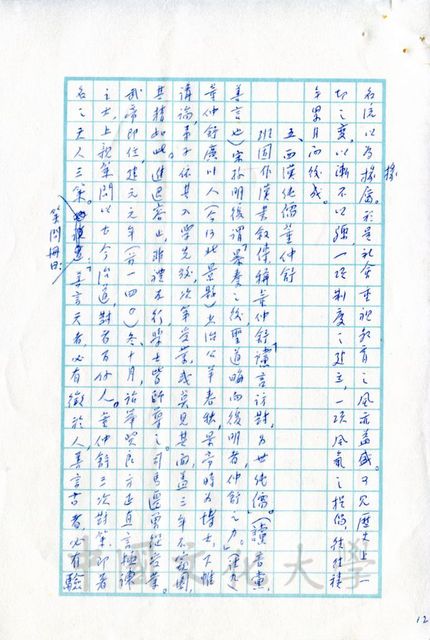 名流以為掾屬。於是社會重視教育之風亦益盛。可見歷史上一
切之變，以漸不以驟，一項制度之建立，一項風氣之提倡，往往積
年累月而後成。
五、西漢純儒董仲舒
班固作漢書敘傳，稱董仲舒「讜言訪對，為世純儒。」（讜音黨，
善言也）宋孫明復謂「暴秦之後，聖道晦而復明者，仲舒之力。」
董仲舒廣川人（今河北景縣）少治公羊春秋，景帝時為博士，下帷
講論，弟子依其入學先後，次第受業，或莫見其面，蓋三年不窺園，
其精如此。進退容止，非禮不行，學士皆師尊之。
武帝即位，建元元年（前一四〇）冬十月，詔舉賢良方正直言極諫
之士，上親策問以古今治道，對者百餘人。董仲舒三次對策，即著
名之天人三策。善言天者，必有徵於人，善言古者，必有驗
策問冊曰：
掾
中國文化大學
12